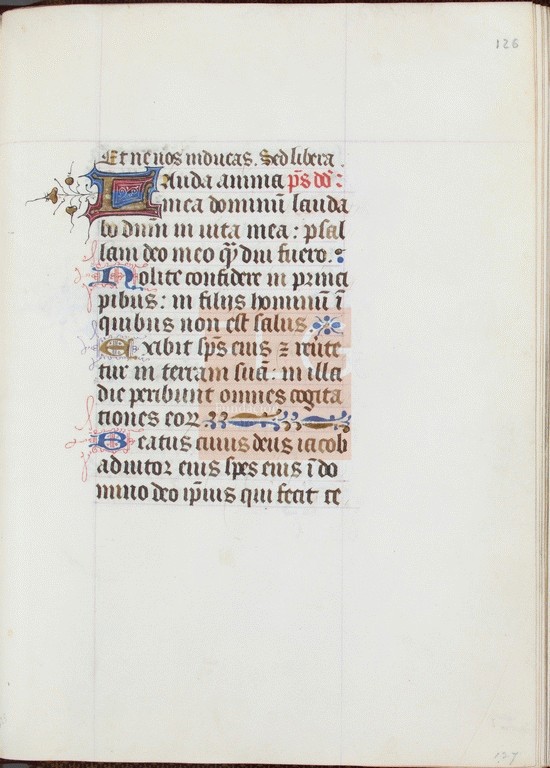 126
Et ne nos inducas. Sed libera.
Lauda anima p̄s dd̄:
mea dominū lauda
bo dn̄m in uita mea: psal
lam deo meo qͣ̄diu fuero.:
Nolite confidere in princi
pibus: in filijs hominū ī
quibus non est salus.
Exibit sp̄s eius ⁊ reūte
tur in terram suā: in illa
die peribunt omnes cogita
tiones eoꝝ
Beatus cuius deus iacob
adiutor eius spes eius ī do
mino deo ip̄ius qui fecit ce
127